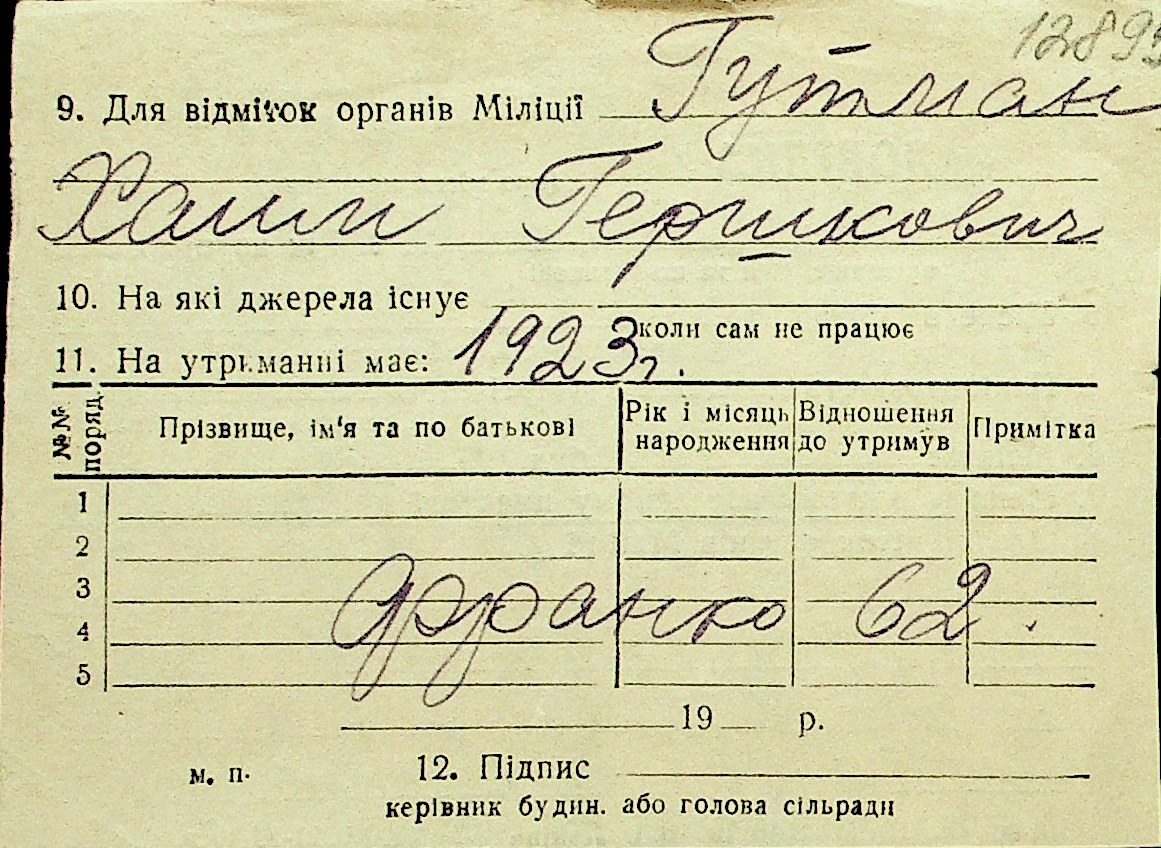 1289
9. Для відміток органів Міліції Гутман
Хаим Гершкович
10. На які джерела існує
коли сам не працює
11. На утриманні має: 1923г.
№№ поряд.
Прізвище, ім'я та по батькові
Рік і місяць народження
Відношення до утримув
Примітка
1
2
3
4
5
Франко 62.
19 р.
м. п. 12. Підпис
керівник будин. або голова сільради